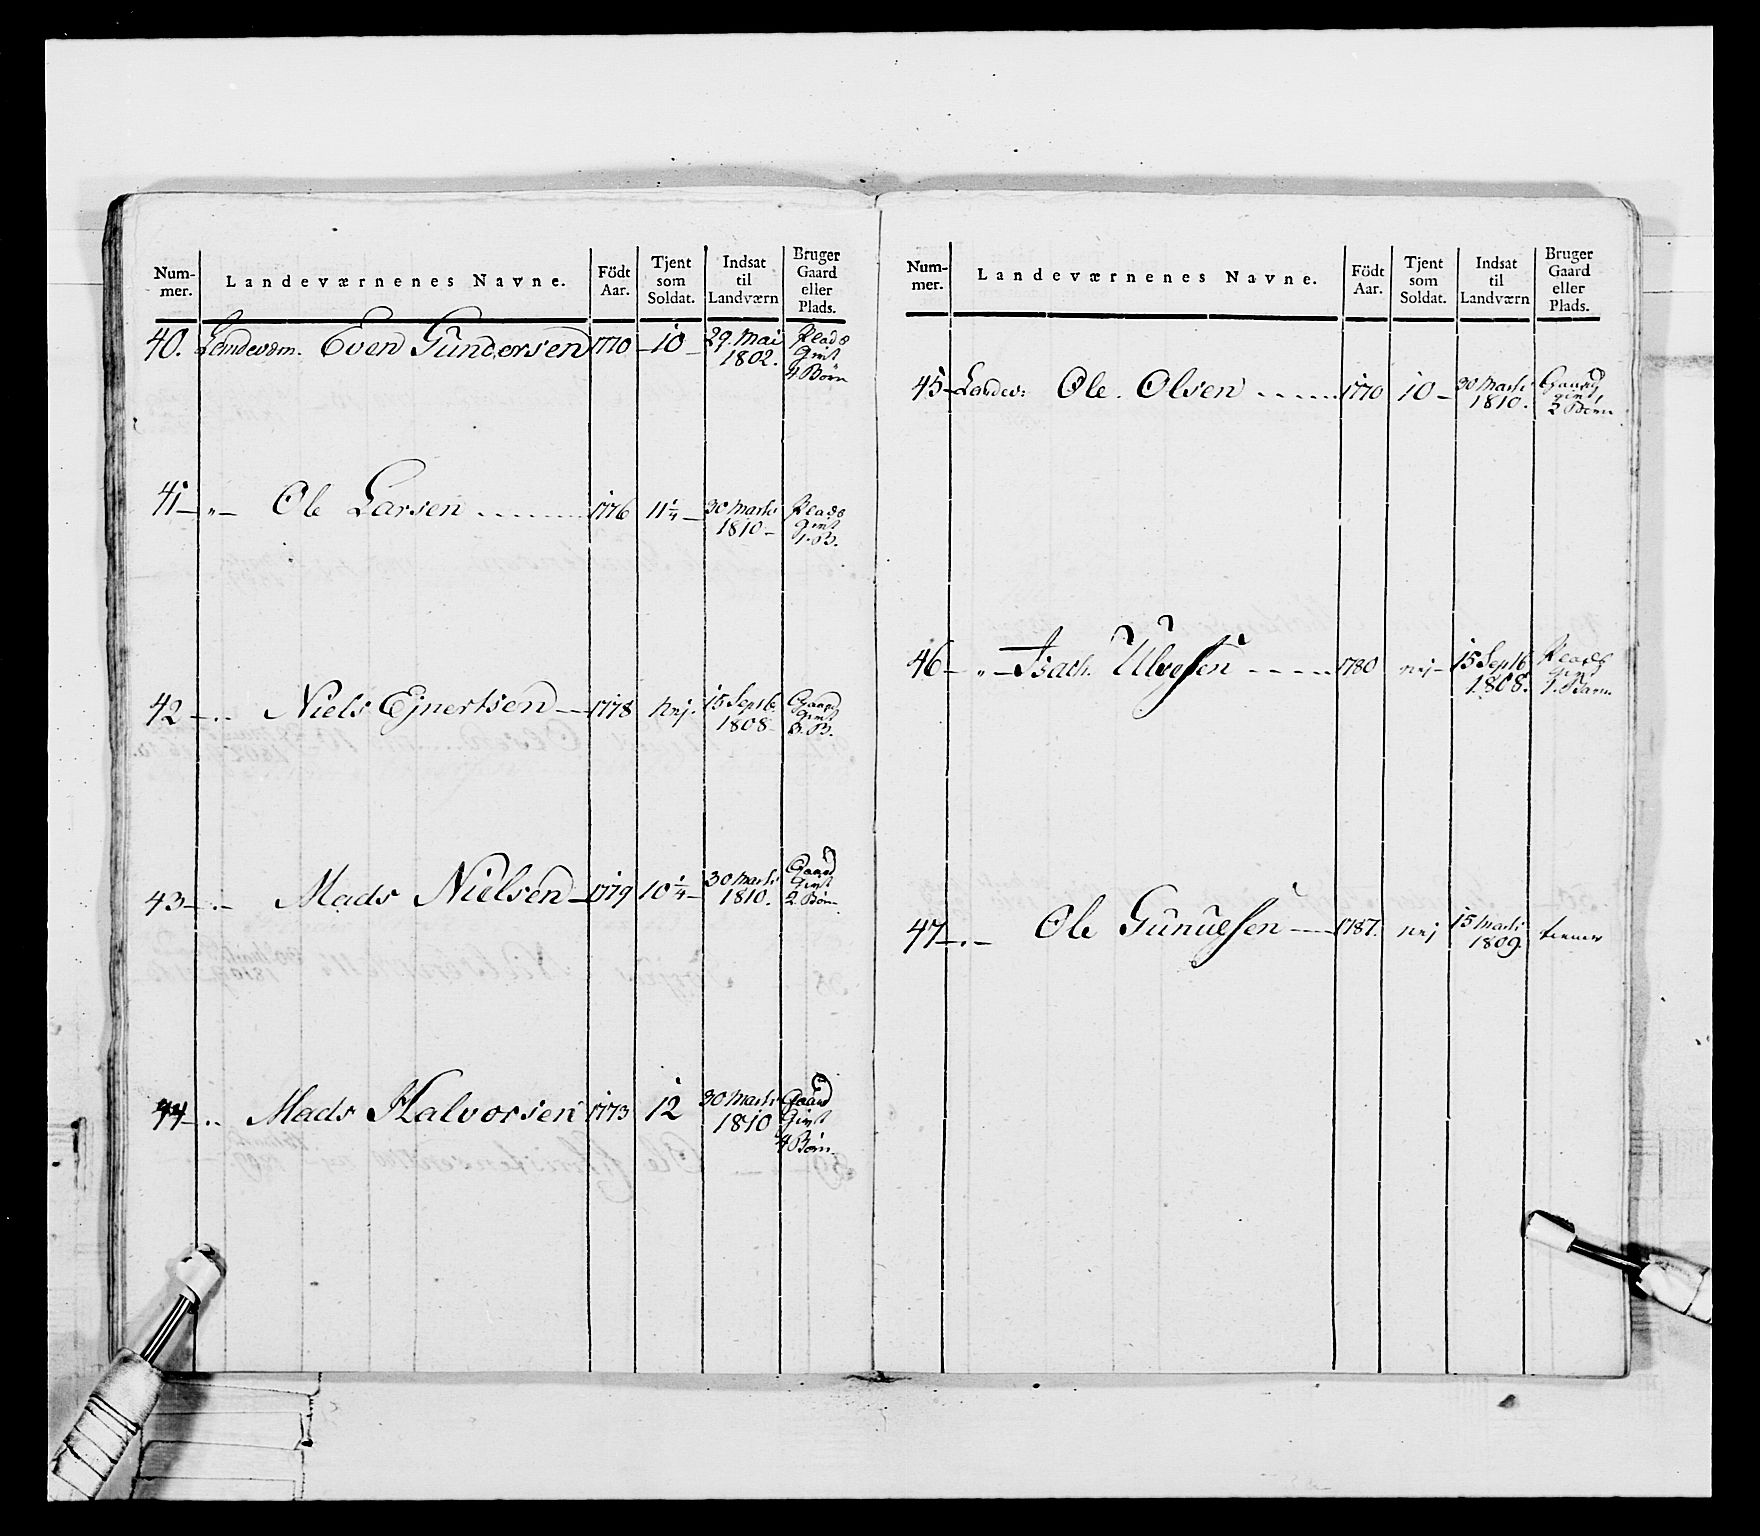 Num-
mer.
Landeværnenes Navne.
Födt
Aar.
Tjent
som
Soldat.
Indsat
til
Landværn
Bruger
Gaard
eller
Plads.
40. Landevæm. Even Gundersen 1770 - 10 - 29. Mai 1802. Plads
Givt
4 Børn
41 - „ - Ole Larsen ....... 1776 11 1/4 - 30 Marti 1810 - Plads
Givt
1. B.
42 - „ - Niels Ejnertsen - 1778 Nej. 15 Septb 1808 - Gaard
Givt
3. B.
43 - „ - Mads Nielsen - 1779 10 1/4 - 30 Marti 1810. Gaard
Givt
2. Børn
44 - „ Mads Halvorsen 1773 12 30 Marti 1810 Gaard
Givt
4 Børn
Num-
mer.
Landeværnenes Navne.
Födt
Aar.
Tjent
som
Soldat.
Indsat
til
Landværn
Bruger
Gaard
eller
Plads.
45 - Landev: Ole. Olsen ...... 1770 10 - 30 Marti 1810. Gaard
givt,
2 Børn
46 - „ - Isach Ulvessen - - - - 1780 nej - 15 Septb 1808. Plads
Givt
1. Barn
47 - „ - Ole Gunuessen - - 1787. nej 15 Marti 1809. tienner